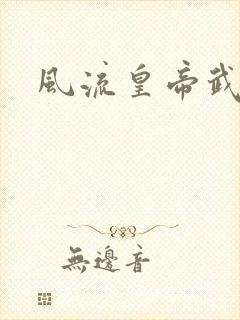 風流皇帝武
無邊音